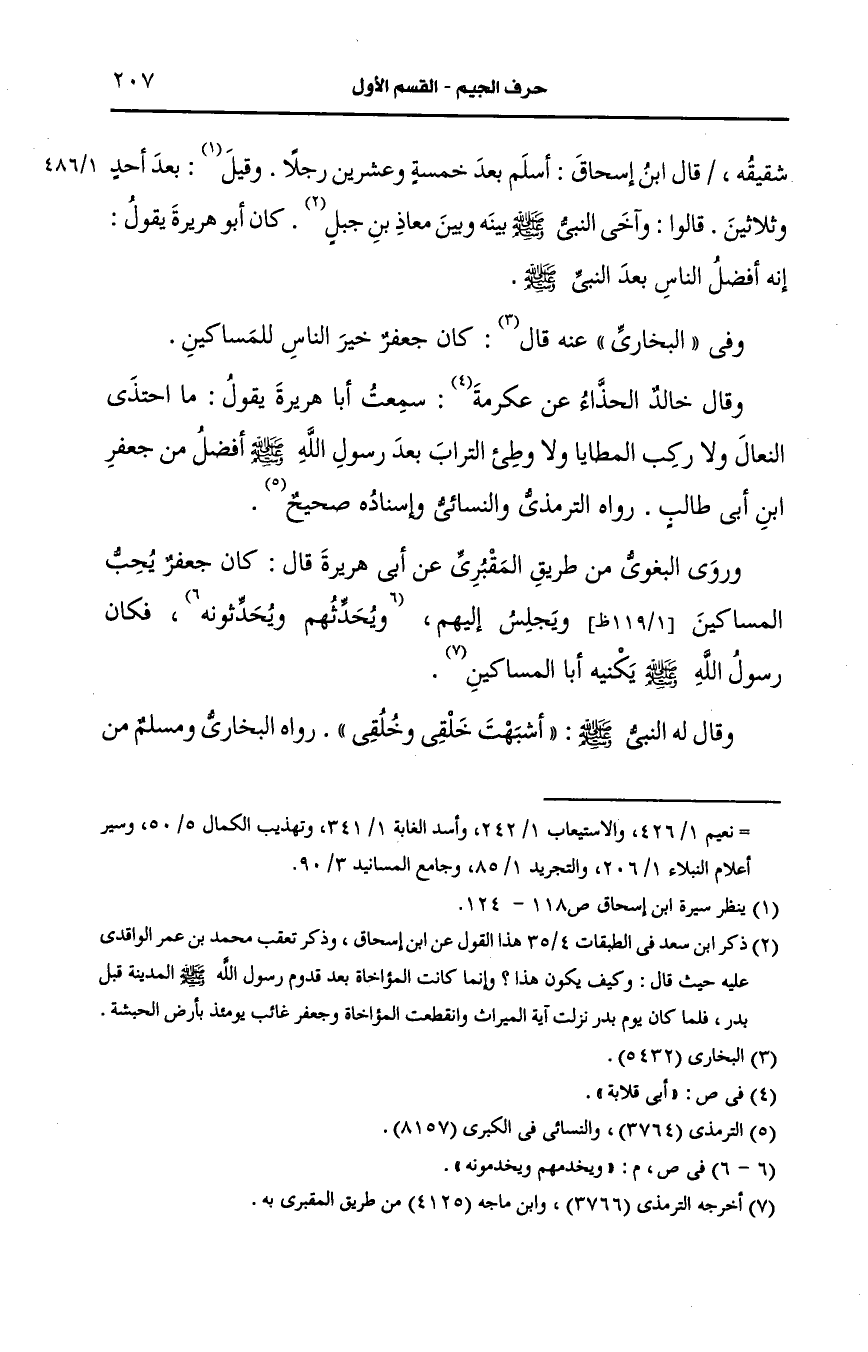 حرف الجيم - القسم الأول ٢٠٧
شقيقُه ، / قال ابنُ إسحاقَ : أسلَم بعدَ خمسةٍ وعشرين رجلًا . وقيلَ(١) : بعدَ أحدٍ ٤٨٦/١
وثلاثينَ . قالوا : وآخَى النبىُّ ﷺ بينَه وبينَ معاذِ بنِ جبلٍ(٢) . كان أبو هريرةَ يقولُ :
إنه أفضلُ الناسِ بعدَ النبىِّ ﷺ .
وفى « البخارىِّ » عنه قال(٣) : كان جعفرٌ خيرَ الناسِ للمَساكينِ .
وقال خالدٌ الحذَّاءُ عن عكرمةَ(٤) : سمِعتُ أبا هريرةَ يقولُ : ما احتذَى
النعالَ ولا ركِب المطايا ولا وطِئ الترابَ بعدَ رسولِ اللَّهِ ﷺ أفضلُ من جعفرِ
ابنِ أبى طالبٍ . رواه الترمذىُّ والنسائىُّ وإسنادُه صحيحٌ(٥) .
وروَى البغوىُّ من طريقِ المَقْبُرِىِّ عن أبى هريرةَ قال : كان جعفرٌ يُحِبُّ
المساكينَ [١١٩/١ظ] ويَجلِسُ إليهم ، (٦ويُحَدِّثُهم ويُحَدِّثونه٦) ، فكان
رسولُ اللَّهِ ﷺ يَكْنيه أبا المساكينِ(٧) .
وقال له النبىُّ ﷺ : « أشبَهْتَ خَلْقِى وخُلُقِى » . رواه البخارىُّ ومسلمٌ من
= نعيم ١/ ٤٢٦، والاستيعاب ١/ ٢٤٢، وأسد الغابة ١/ ٣٤١، وتهذيب الكمال ٥/ ٥٠، وسير
أعلام النبلاء ١/ ٢٠٦، والتجريد ١/ ٨٥، وجامع المسانيد ٣/ ٩٠.
(١) ينظر سيرة ابن إسحاق ص١١٨ - ١٢٤.
(٢) ذكر ابن سعد فى الطبقات ٣٥/٤ هذا القول عن ابن إسحاق ، وذكر تعقب محمد بن عمر الواقدى
عليه حيث قال : وكيف يكون هذا ؟ وإنما كانت المؤاخاة بعد قدوم رسول اللَّه ﷺ المدينة قبل
بدر ، فلما كان يوم بدر نزلت آية الميراث وانقطعت المؤاخاة وجعفر غائب يومئذ بأرض الحبشة .
(٣) البخارى (٥٤٣٢) .
(٤) فى ص : « أبى قلابة » .
(٥) الترمذى (٣٧٦٤) ، والنسائى فى الكبرى (٨١٥٧) .
(٦ - ٦) فى ص ، م : « ويخدمهم ويخدمونه » .
(٧) أخرجه الترمذى (٣٧٦٦) ، وابن ماجه (٤١٢٥) من طريق المقبرى به .